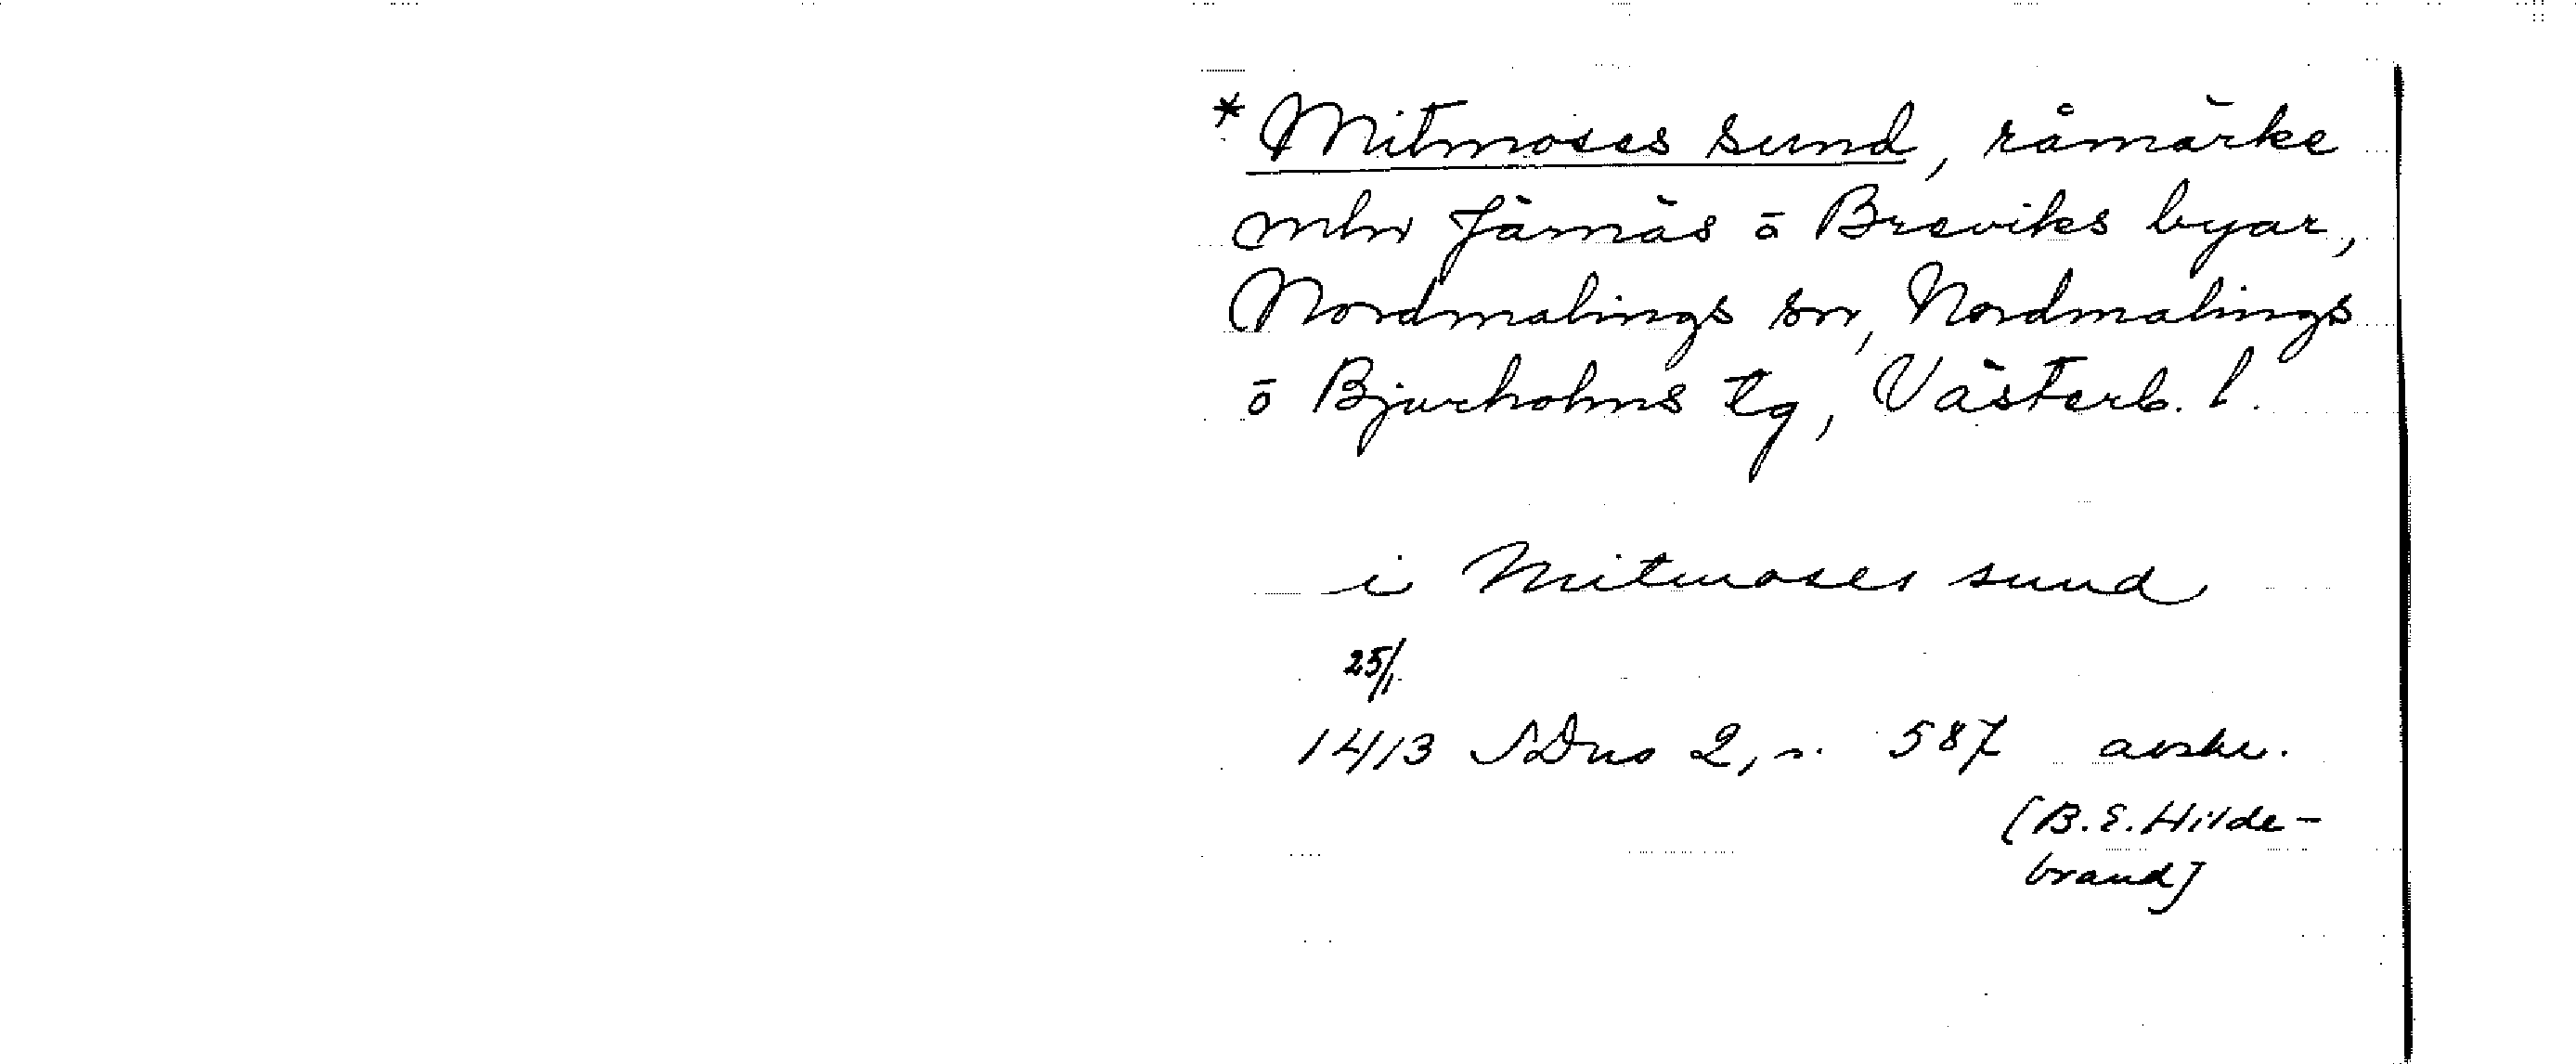 * Mitmoses sund, råmärke
mln Järnäs o Breviks byar,
Nordmalings sn, Nordmalings
o Bjurholms tg, Västerb. l.
i Mitmoses sund
25/1
1413 SDns 2, s. 587 avskr.
[B.E. Hilde-
brand]